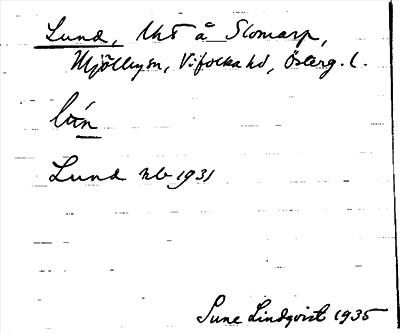 Lund, Uts å Slomarp,
Mjölby sn, Vifolka hd, Österg. l.
lún
Lund nb 1931
Sune Lindqvist 1935